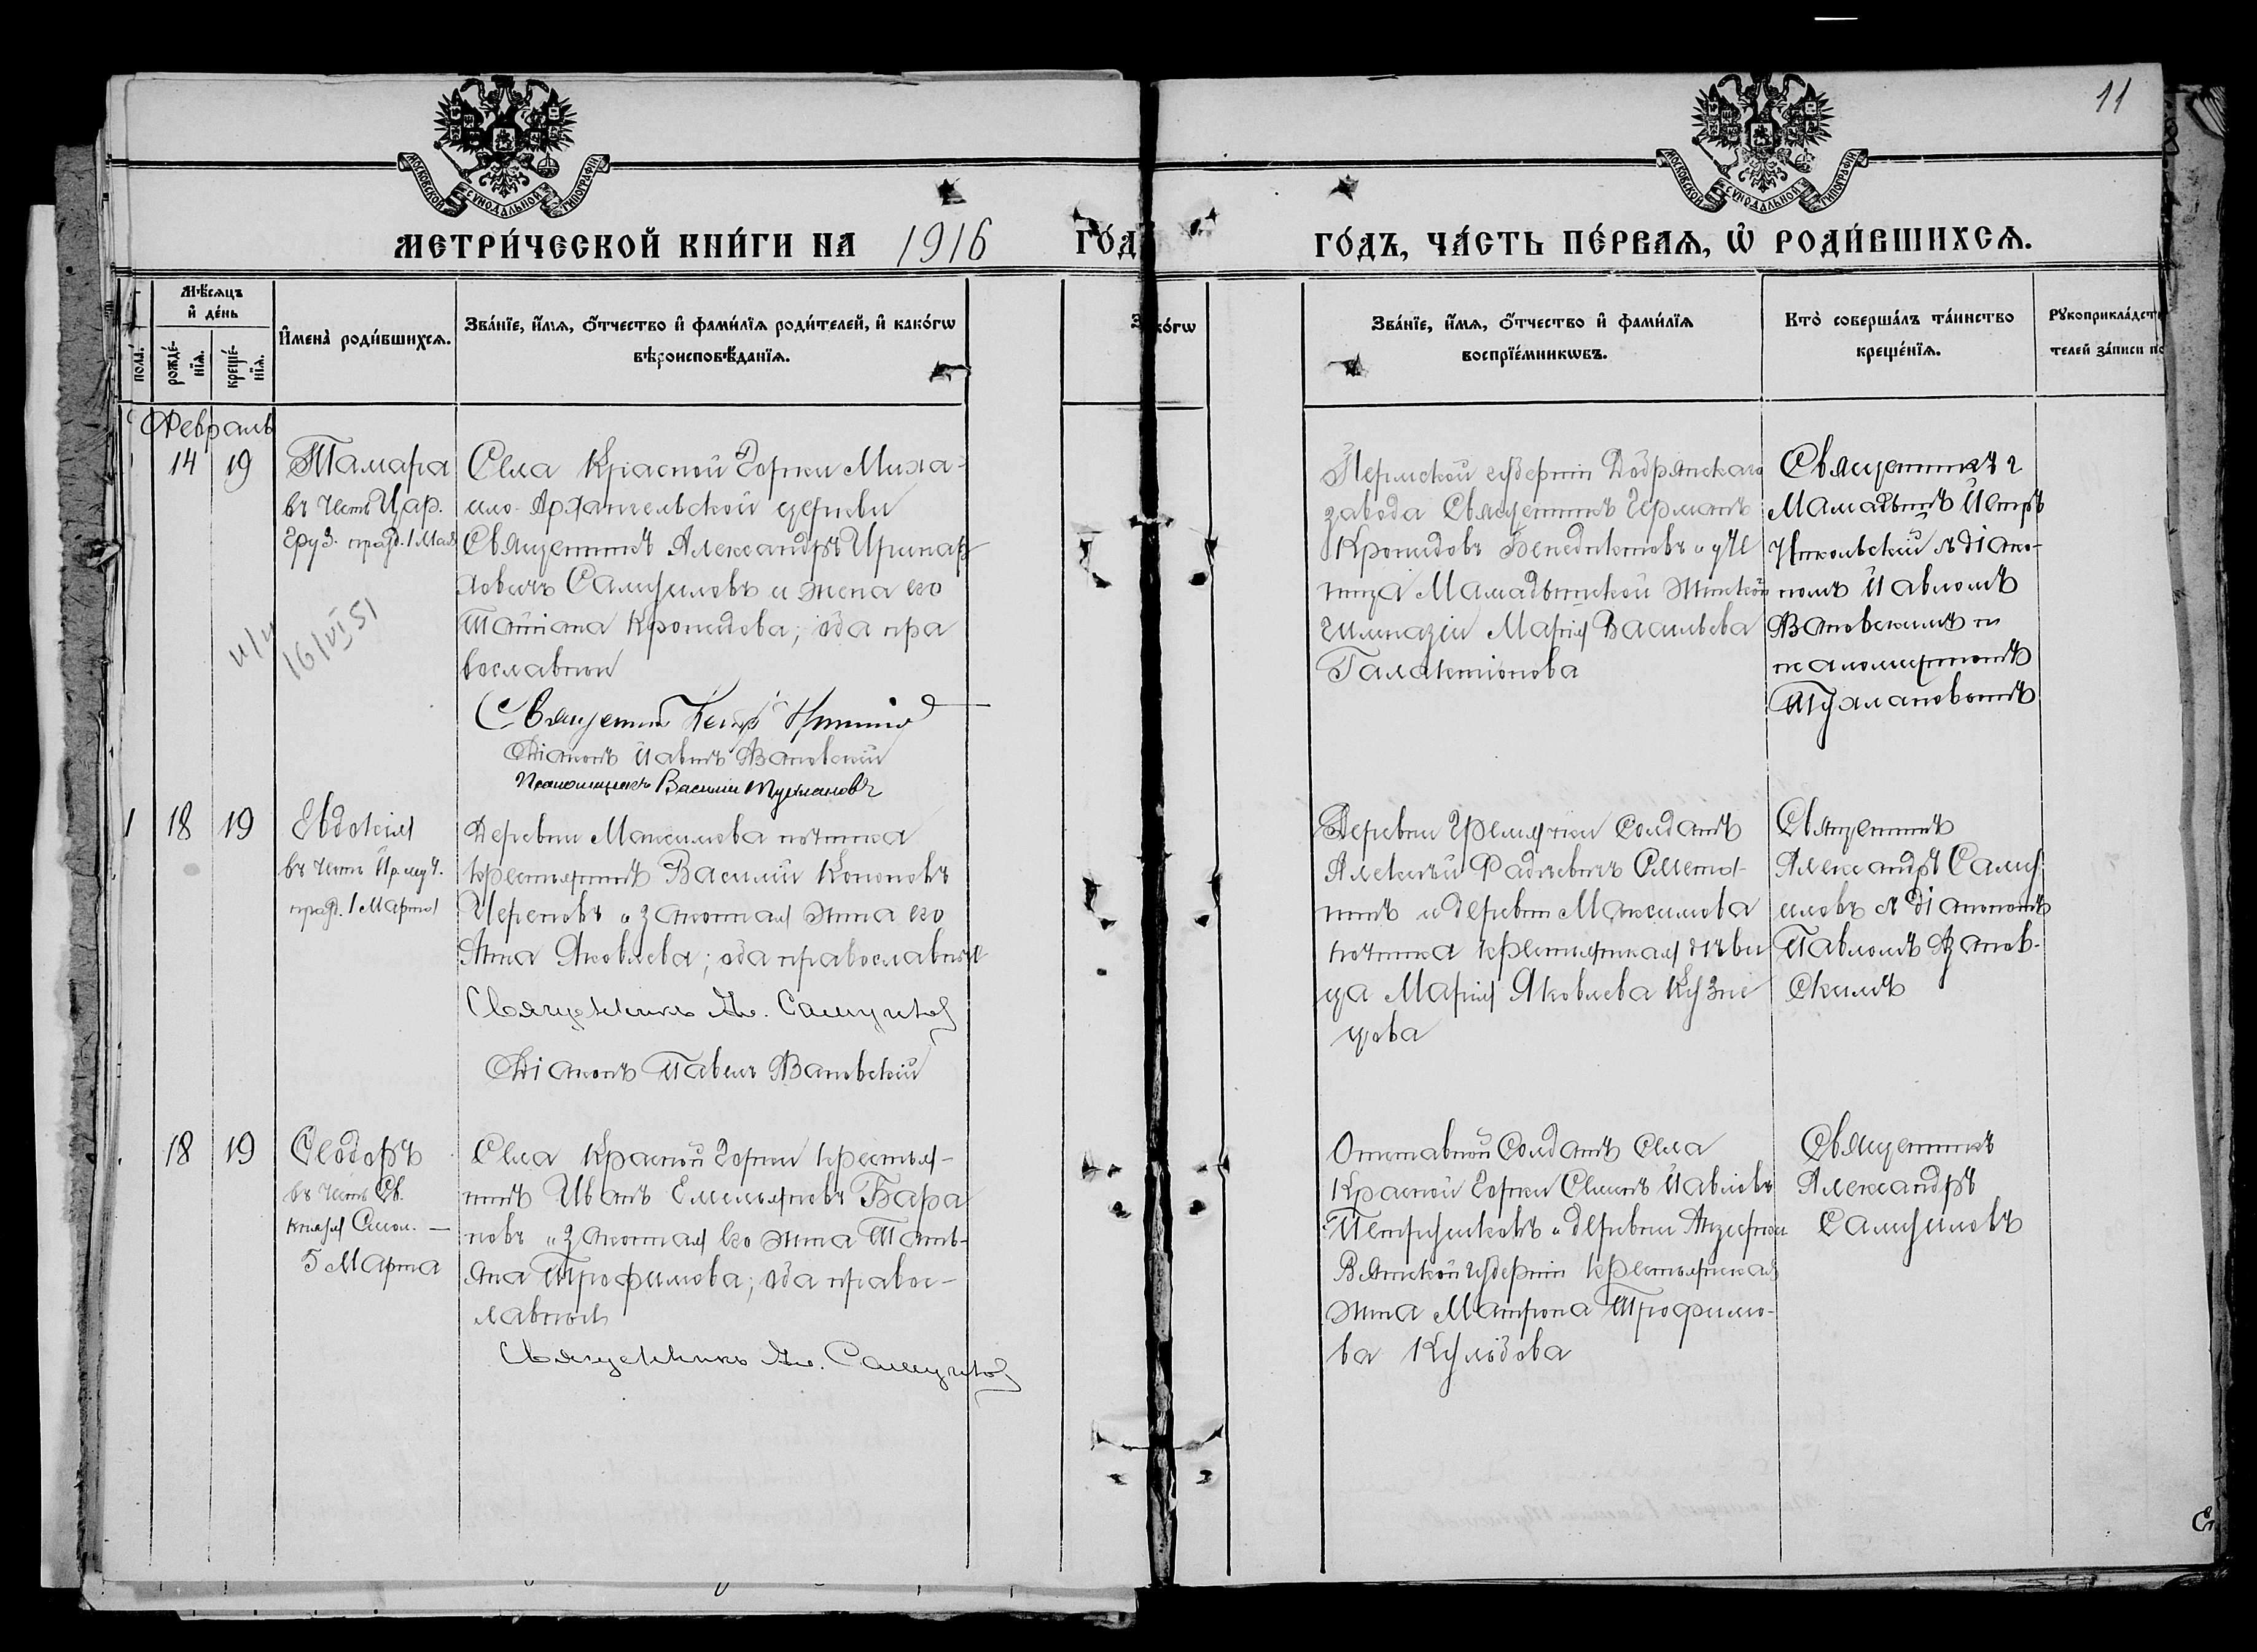 11
МОСКОВСКОЙ СѴНОДАЛЬНОЙ ТИПОГРАФІИ
МОСКОВСКОЙ СѴНОДАЛЬНОЙ ТИПОГРАФІИ
МЕТРИ́ЧЕСКОЙ КНИ́ГИ НА 1916 ГО́Д
ГО́ДЪ, ЧА́СТЬ ПЕ́РВАѦ, Ѡ҆ РОДИ́ВШИХСѦ.
Мѣ́сѧцъ
и҆ де́нь
пола̀.
рожде́-
нїѧ.
креще́-
нїѧ.
И҆мена̀ роди́вшихсѧ.
Зва́нїе, и҆́мѧ, ѻ҆́тчество и҆ фами́лїѧ роди́телей, и҆ како́гѡ
вѣроисповѣ́данїѧ.
ко́гѡ
Зва́нїе, и҆́мѧ, ѻ҆́тчество и҆ фами́лїѧ
воспрїе́мникѡвъ.
Кто̀ соверша́лъ та́инство
креще́нїѧ.
Рꙋкоприкла́дст
телей за́писи по
Февраль
14 19
Тамара
въ честь Цар.
Груз. празд. 1 Мая
Села Красной Горки Миха-
ило-Архангельской церкви
Священникъ Александръ Иринар
ховичъ Самуиловъ и жена его
Татіана Кронидова; оба пра
вославнои
Священник Петръ
Діаконъ Павелъ Азановскій
Псаломщикъ Василій Тухлановъ
Пермской губерніи Добрянскаго
завода Священникъ Германъ
Кронидовъ Бенедиктовъ и уче
ница Мамадышской женской
Гимназіи Марія Васильева
Галактіонова
Священникъ г
Мамадышъ Петръ
Никольскій съ діако-
номъ Павломъ
Азановскимъ и
псаломщикомъ
Тухлановымъ
1 18 19
Евдокія
въ честь Пр. муч.
празд. 1 Марта
Деревни Максимова починка
крестьянинъ Василій Кононовъ
Черновъ и законная жена его
Анна Яковлева; оба православные
Священникъ Ал. Самуилов
Діаконъ Павелъ Азановскій
Деревни Гремячки Солдатъ
Алексѣй Фадѣевичъ Сметан
нинъ и деревни Максимова
починка крестьянская дѣви
ца Марія Яковлева Кузне
цова
Священникъ
Александръ Саму
иловъ съ діакономъ
Павломъ Азанов-
скимъ
18 19
Ѳеодоръ
въ честь Св.
князя Смол. —
5 Марта
Села Красной Горки крестья-
нинъ Иванъ Емельяновъ Бара
новъ и законная его жена Тать-
яна Трофимова; оба правос-
лавные
Священникъ Ал. Самуилов
Отставной Солдатъ Села
Красной Горки Семенъ Павловъ
Петрушковъ и деревни
Вятской губерніи крестьянская
жена Матрона Трофимо-
ва
Священникъ
Александръ
Самуиловъ
16/VI 51